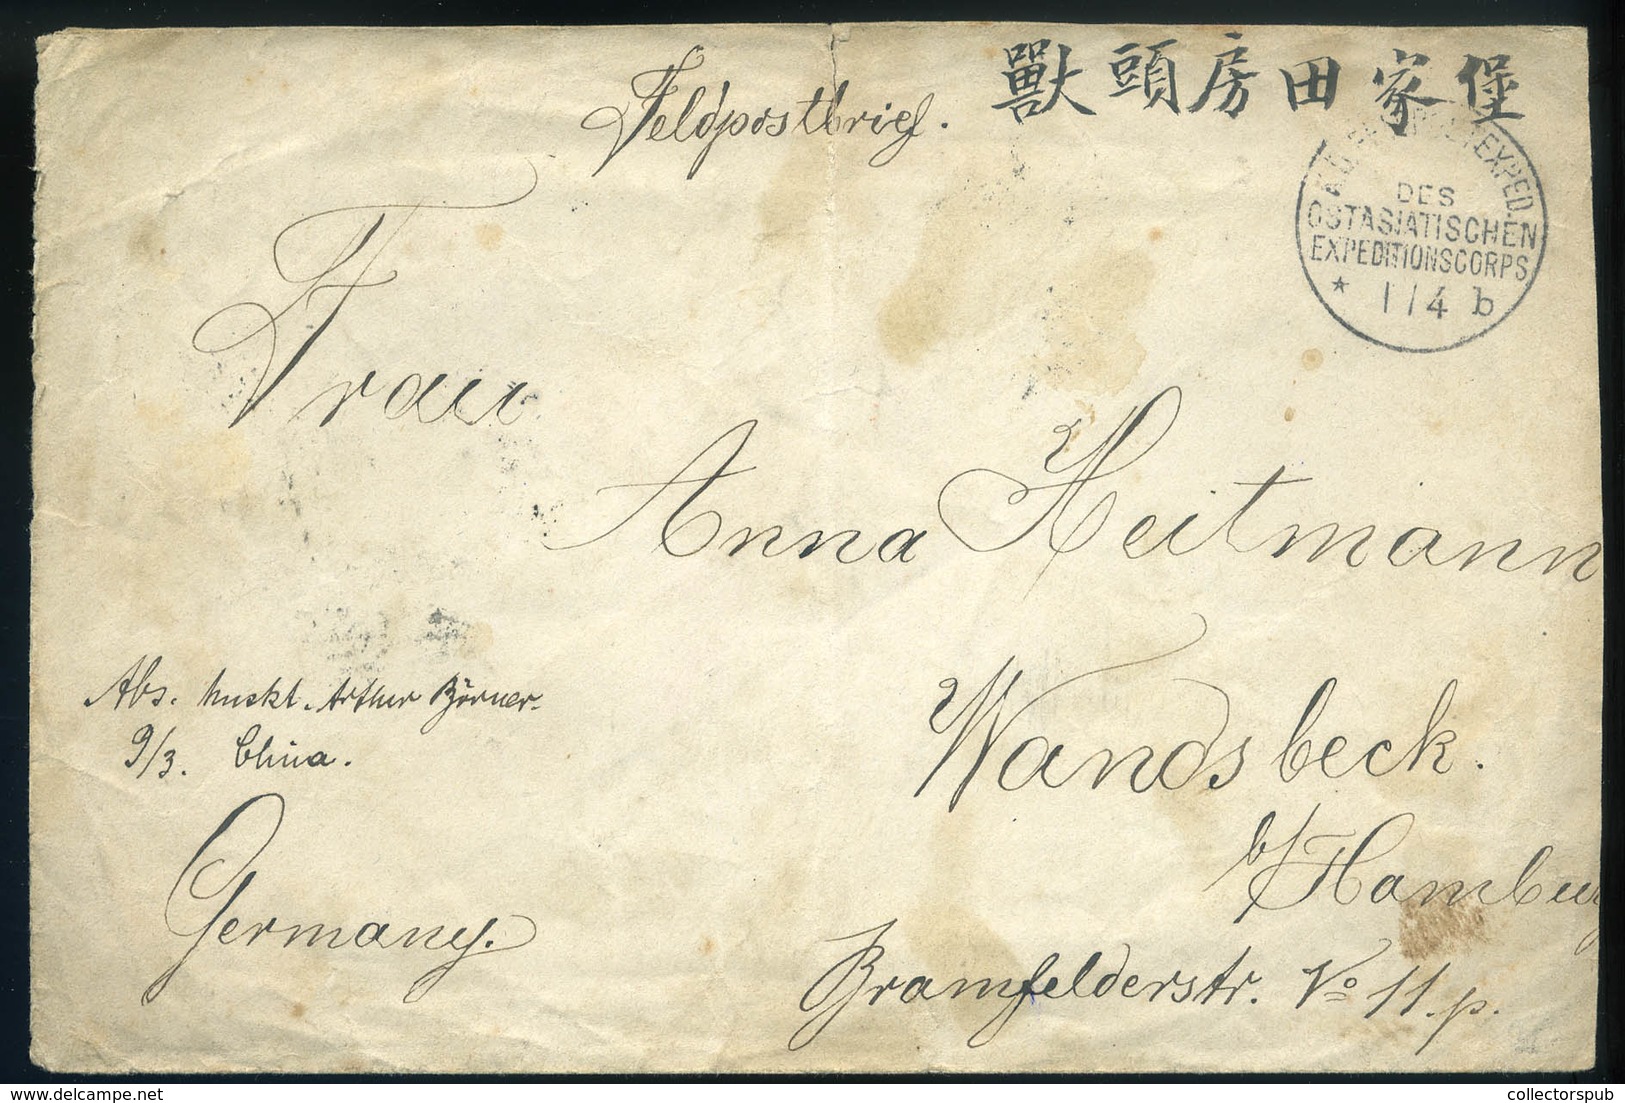 獸頭房田家堡
Feldpostbrief.
EXPED.
DES
OSTASIATISCHEN
EXPEDITIONSCORPS
* 1/4 b
Frau
Anna Heitmann
Wandsbeck.
b/Hamburg
Bramfelderstr. No 11. p.
Abs. Muskt. Arthur Börner.
9/3. China.
Germany.
collectorspub